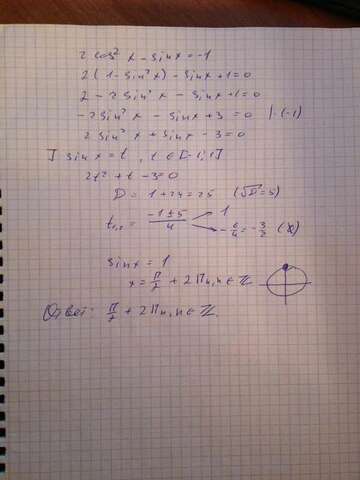 2 cos² x - sin x = -1
2(1 - sin² x) - sin x + 1 = 0
2 - 2 sin² x - sin x + 1 = 0
-2 sin² x - sin x + 3 = 0 | · (-1)
2 sin² x + sin x - 3 = 0
] sin x = t, t ∈ [-1; 1]
2t² + t - 3 = 0
D = 1 + 24 = 25 (√D = 5)
t₁,₂ = (-1 ± 5)/4 ↗ 1
↘ -6/4 = -3/2 (X)
sin x = 1
x = π/2 + 2πn, n ∈ ℤ
Ответ: π/2 + 2πn, n ∈ ℤ.